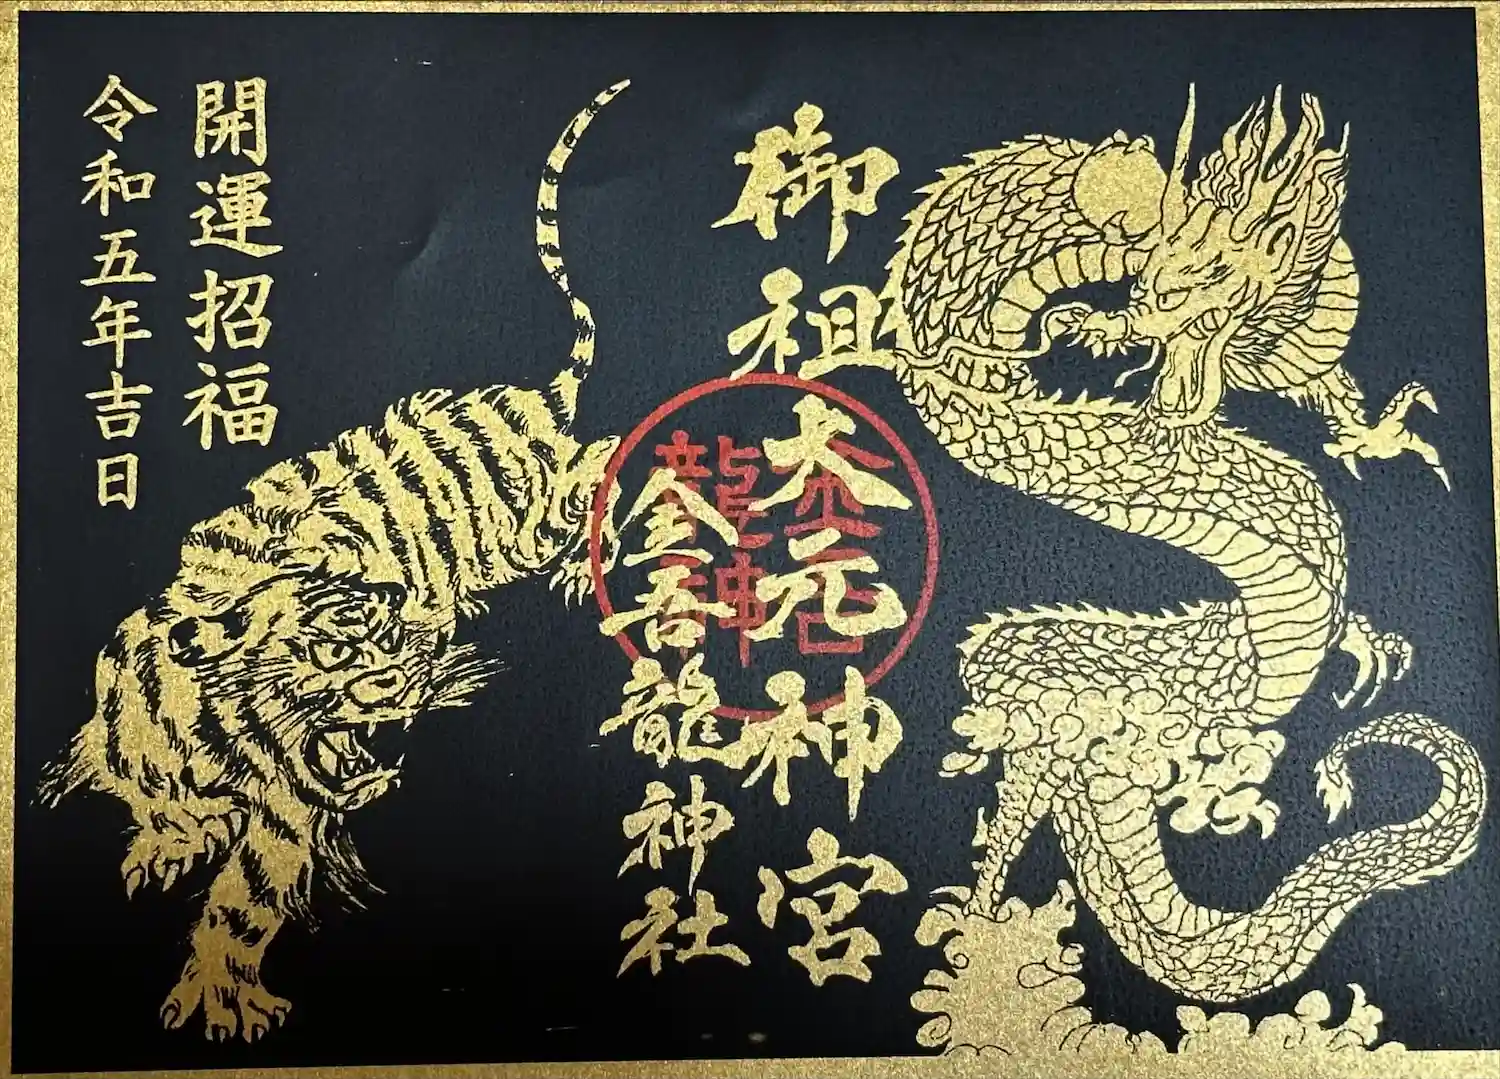 御祖大元神宮
金吾龍神社
金吾
龍神
開運招福
令和五年吉日